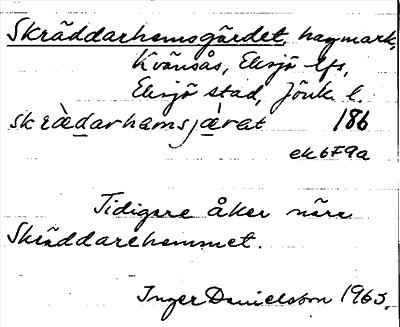 Skräddarhemsgärdet, hagmark,
Kvänsås, Eksjö lfs,
Eksjö stad, Jönk l.
skrädarhamsjärat 186
ek 6F9a
Tidigare åker nära
Skräddarehemmet.
Inger Danielsson 1965.